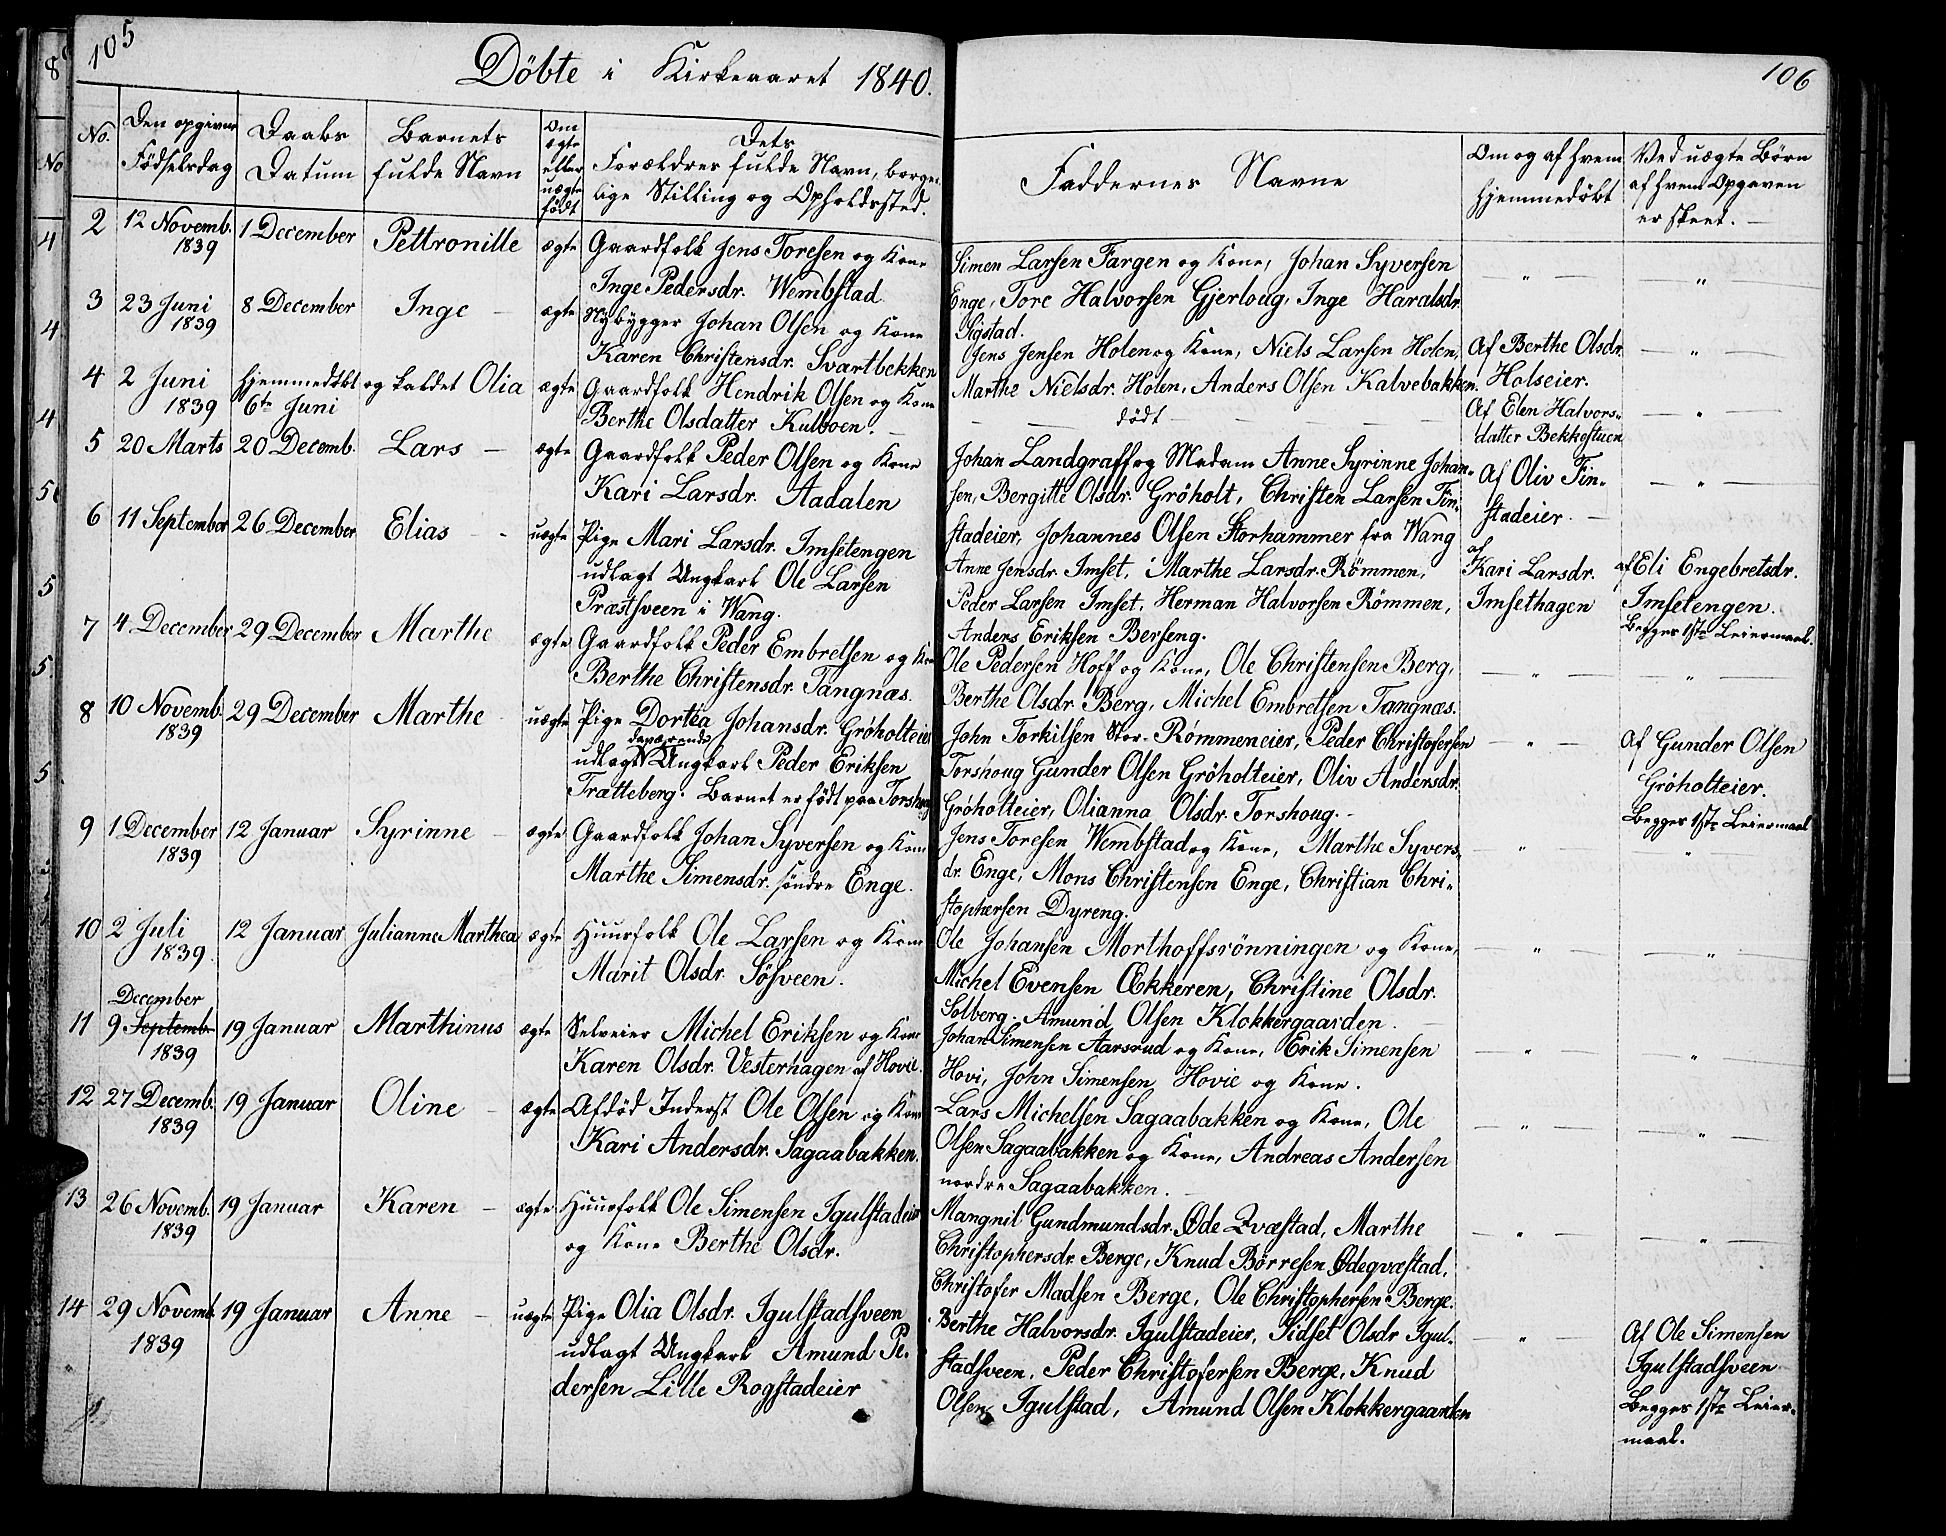 105
Döbte i Kirkeaaret 1840.
No.
Den opgivne
Födselsdag
Daabs
Datum
Barnets
fulde Navn
Om
ægte
eller
uægte
födt
Dets
Forældres fulde Navn, borger
lige Stilling og Opholdssted.
2 12 Novemb. 1 December Pettronille ægte Gaardfolk Jens Toresen og Kone
1839 Inge Pedersdr. Wembstad
3 23 Juni 8 December Inge – ægte Nybygger Johan Olsen og Kone
1839 Karen Christensdr. Svartbekken
4 2 Juni hjemmedöbt og kaldet Olia ægte Gaardfolk Hendrik Olsen og Kone
1839 6te Juni Berthe Olsdatter Kulboen.
5 20 Marts 20 Decemb. Lars – ægte Gaardfolk Peder Olsen og Kone
Kari Larsdr. Aadalen
6 11 September 26 December Elias – uægte Pige Mari Larsdr. Imsetengen
udlagt Ungkarl Ole Larsen
Præstsveen i Wang.
7 4 December 29 December Marthe ægte Gaardfolk Peder Embretsen og Kone
Berthe Christensdr. Tangnæs.
8 10 Novemb. 29 December Marthe uægte Pige Dortea Johansdr. Gröholteier
1839 udlagt daværende Ungkarl Peder Eriksen
Trætteberg. Barnet er födt paa Torshoug
9 1 December 12 Januar Syrinne – ægte Gaardfolk Johan Syversen og Kone
1839 Marthe Simensdr. söndre Enge.
10 2 Juli 12 Januar Julianne Marthea ægte Huusfolk Ole Larsen og Kone
1839. Marit Olsdr. Sösveen.
December
11 9 Septemb. 19 Januar Marthinus ægte Selveier Michel Eriksen og Kone
1839 Karen Olsdr. Vesterhagen af Hovie.
12 27 Decemb. 19 Januar Oline – ægte Afdöd Inderst Ole Olsen og Kone
1839 Kari Andersdr. Sagaabakken.
13 26 Novemb. 19 Januar Karen – ægte Huusfolk Ole Simensen Igulstadeier
1839 og Kone Berthe Olsdr.
14 29 Novemb. 19 Januar Anne – uægte Pige Olia Olsdr. Igulstadsveen
1839 udlagt Ungkarl Amund Pe-
dersen Lille Rogstadeier
106
Faddernes Navne
Om og af hvem
hjemmedöbt
Ved uægte Börn
af hvem Opgaven
er skeet. –
Simen Larsen Fargen og Kone, Johan Syversen
Enge, Tore Halvorsen Gjerloug, Inge Haralsdr.
Sigstad.
Jens Jensen Holen og Kone, Niels Larsen Holen, Af Berthe Olsdr.
Marthe Nielsdr. Holen, Anders Olsen Kalvebakken. Holseier.
dödt Af Elen Halvors-
datter Bekkestuen
Johan Landgraff og Madam Anne Syrinne Johan- Af Oliv Fin-
sen, Bergitte Olsdr. Gröholt, Christen Larsen Fin- stadeier.
stadeier, Johannes Olsen Storhammer fra Wang
Anne Jensdr. Imset, Marthe Larsdr. Römmen, af Kari Larsdr. af Eli Engebretsdr.
Peder Larsen Imset, Herman Halvorsen Römmen, Imsethagen Imsetengen.
Anders Eriksen Berseng. Begges 1ste Leiermaal.
Ole Pedersen Hoff og Kone, Ole Christensen Berg,
Berthe Olsdr. Berg, Michel Embretsen Tangnæs.
John Torkilsen Stor-Römmeneier, Peder Christofersen Af Gunder Olsen
Torshoug Gunder Olsen Gröholteier, Oliv Andersdr. Gröholteier.
Gröholteier, Olianna Olsdr. Torshoug. – Begges 1ste Leiermaal
Jens Toresen Wembstad og Kone, Marthe Syvers-
dr. Enge, Mons Christensen Enge, Christian Chri-
stophersen Dyreng.
Ole Johansen Morthoffsrönningen og Kone,
Michel Evensen Œkkeren, Christine Olsdr.
Solberg. Amund Olsen Klokkergaarden.
Johan Simensen Aarsrud og Kone, Erik Simensen
Hovi, John Simensen Hovie og Kone.
Lars Michelsen Sagaabakken og Kone, Ole
Olsen Sagaabakken og Kone, Andreas Andersen
nordre Sagaabakken.
Mangnil Gundmundsdr. Öde Qvæstad, Marthe
Christophersdr. Berge, Knud Börresen Ödeqvæstad,
Christofer Madsen Berge, Ole Christophersen Berge.
Berthe Halvorsdr. Igulstadeier, Sidset Olsdr Igul- Af Ole Simensen
stadsveen, Peder Christofersen Berge, Knud Igulstadsveen
Olsen Igulstad, Amund Olsen Klokkergaarden Begges 1ste Leier-
maal.